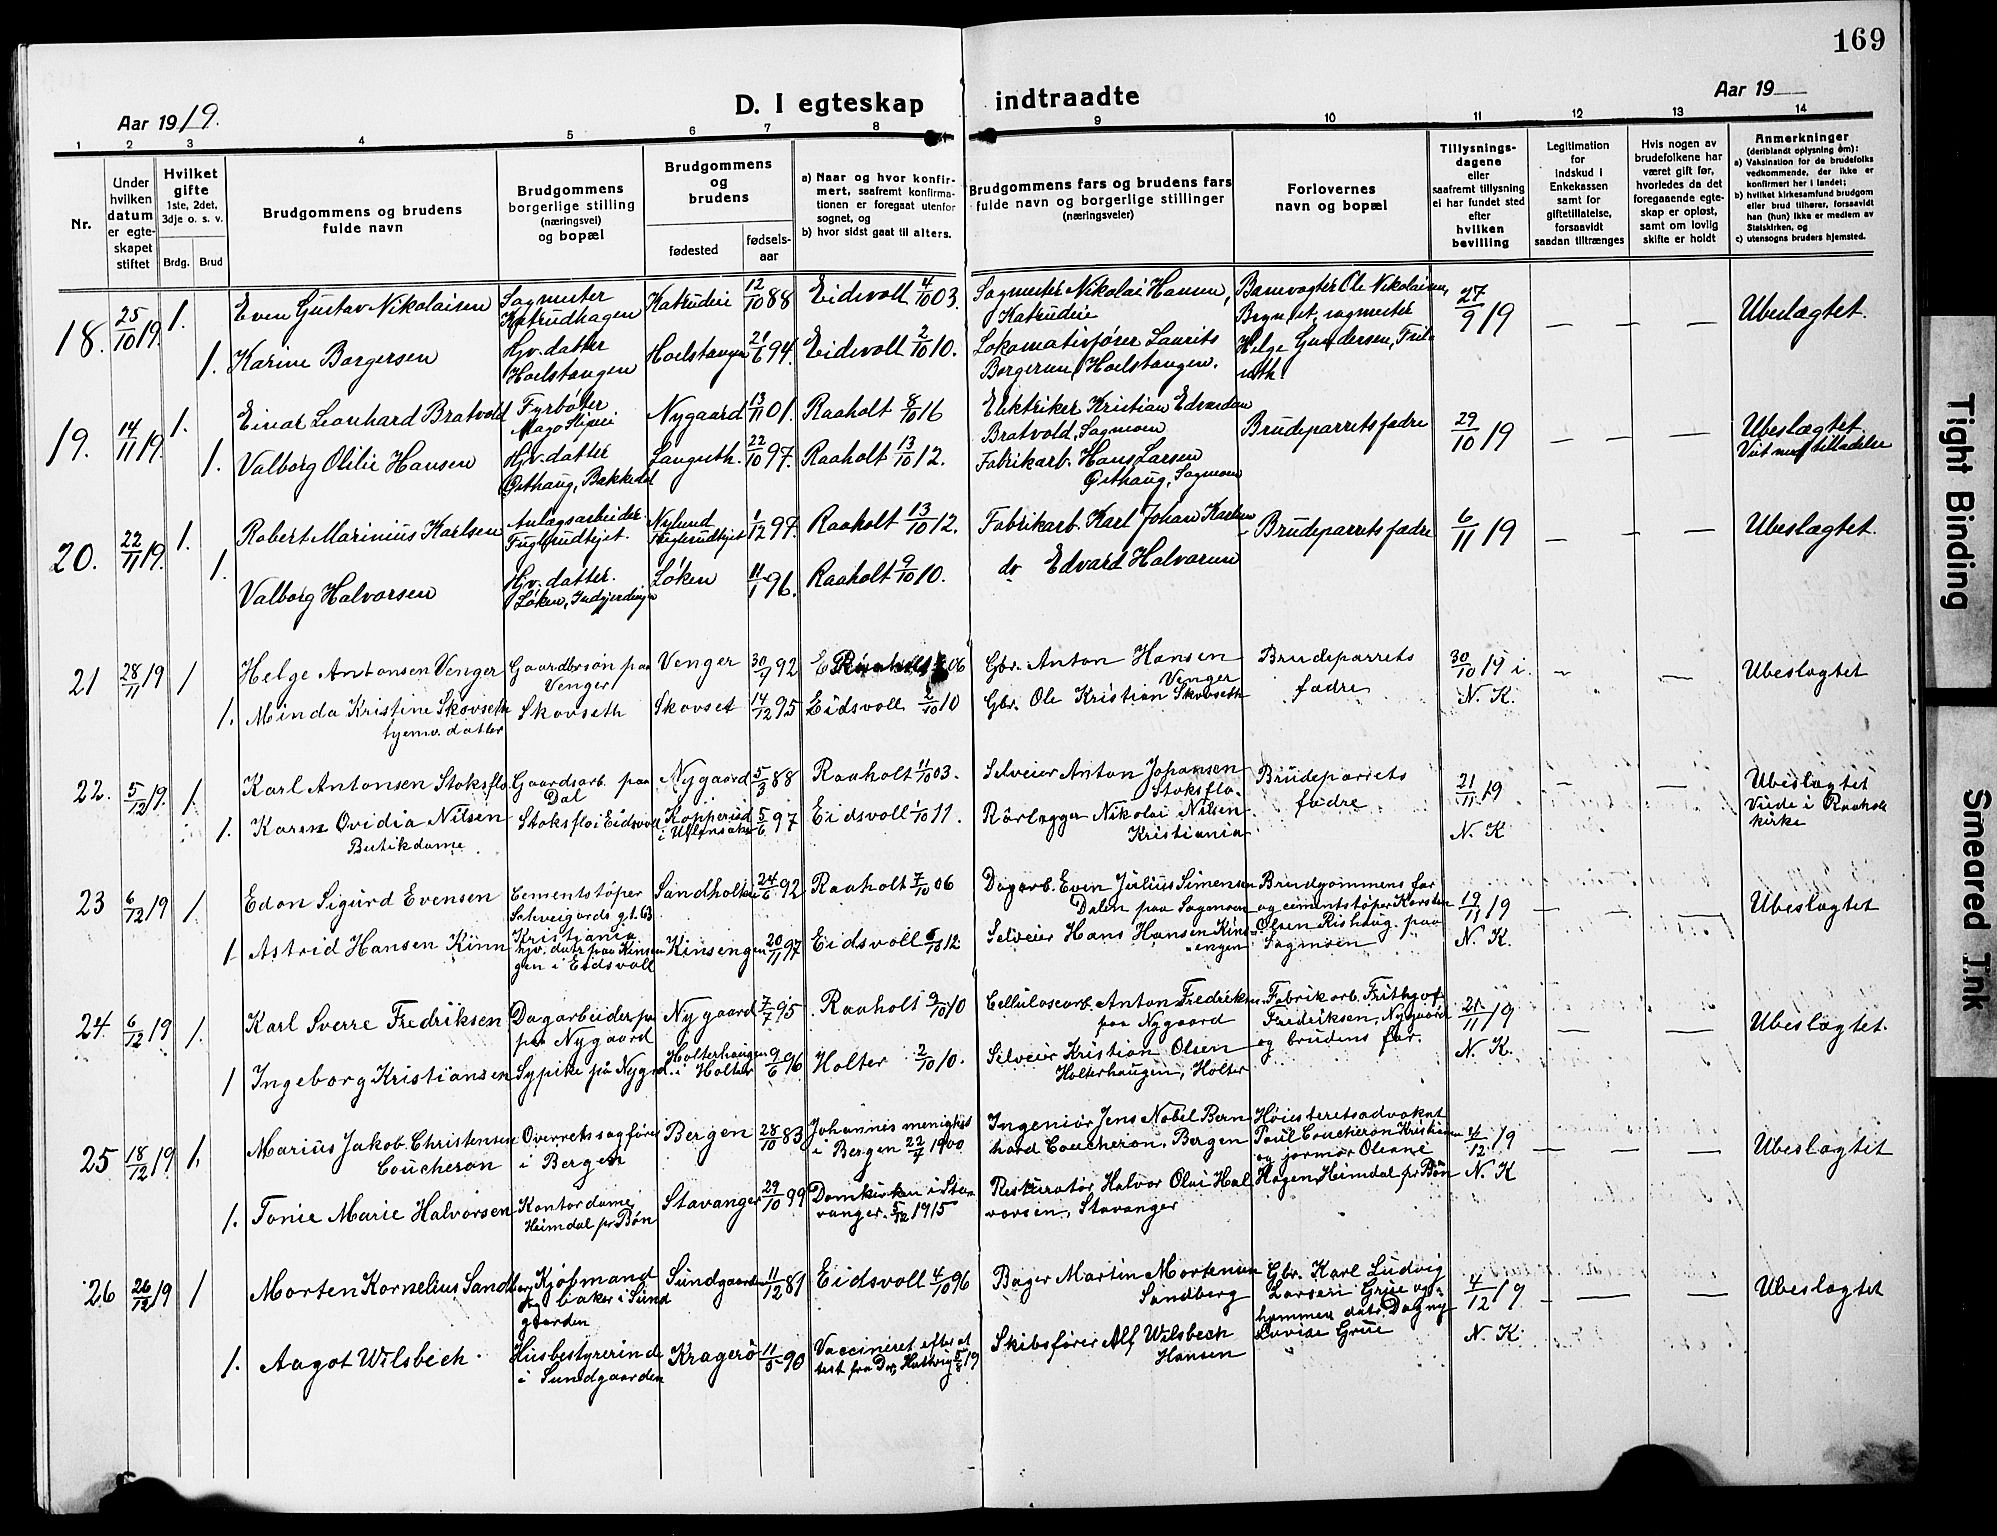 169
Aar 1919.
D. I egteskap indtraadte
Aar 19
1 2 3 4 5 6 7 8 9 10 11 12 13 14
Nr.
Under hvilken datum er egteskapet stiftet
Hvilket gifte 1ste, 2det, 3dje o. s. v.
Brdg. Brud
Brudgommens og brudens fulde navn
Brudgommens borgerlige stilling (næringsvei) og bopæl
Brudgommens og brudens
fødested
fødselsaar
a) Naar og hvor konfirmert, saafremt konfirmationen er foregaat utenfor sognet, og
b) hvor sidst gaat til alters.
Brudgommens fars og brudens fars fulde navn og borgerlige stillinger (næringsveier)
Forlovernes navn og bopæl
Tillysningsdagene eller saafremt tillysning ei har fundet sted efter hvilken bevilling
Legitimation for indskud i Enkekassen samt for giftetillatelse, forsaavidt saadan tiltrænges
Hvis nogen av brudefolkene har været gift før, hvorledes da det foregaaende egteskap er opløst, samt om lovlig skifte er holdt
Anmerkninger (deriblandt oplysning om):
a) Vaksination for de brudefolks vedkommende, der ikke er konfirmert her i landet;
b) hvilket kirkesamfund brudgom eller brud tilhører, forsaavidt han (hun) ikke er medlem av Statskirken, og
c) utensogns bruders hjemsted.
18. 25/10 19. 1. Even Gustav Nikolaisen Sagmester Katrudhagen Katrudeie 12/10 88 Eidsvoll 4/10 03. Sagmester Nikolai Hansen, Katrudeie Banevogter Ole Nikolaisen, 27/9 19 — — — Ubeslægtet.
1. Karine Borgersen Hjv. datter Hoelstangen Hoelstangen 21/6 94. Eidsvoll 2/10 10. Lokomotivfører Laurits Borgersen, Hoelstangen. Helge Gundersen,
19. 14/11 19. 1. Einar Leonhard Bratvold Fyrbøter Nygaard 13/11 01. Raaholt 8/10 16 Elektriker Kristian Edvardsen Bratvold, Sagmoen Brudeparrets fædre 29/10 19 — — — Ubeslægtet.
1. Valborg Otilie Hansen Hjv. datter Østhaug, Bakkedal Langseth. 22/10 97. Raaholt 13/10 12. Fabrikarb. Hans Larsen Østhaug, Sagmoen
20. 22/11 19. 1. Robert Marinius Karlsen Anlægsarbeider Fuglerudejet. Nylund Fuglerudejet 1/12 97. Raaholt 13/10 12. Fabrikarb. Karl Johan Karlsen Brudeparrets fædre 6/11 19 — — — Ubeslægtet.
1. Valborg Halvorsen Hjv. datter. Løken, Løken 11/1 96. Raaholt 9/10 10. do Edvard Halvorsen
21 28/11 19 1 Helge Antonsen Venger Gaardbrsøn paa Venger Venger 30/7 92 06 Gbr. Anton Hansen Venger Brudeparrets fædre 30/10 19 i N. K. — — Ubeslægtet
1. Minda Kristine Skovseth hjemv. datter Skovseth Skovset 17/12 95 Eidsvoll 2/10 10 Gbr. Ole Kristian Skovseth
22. 5/12 19. 1. Karl Antonsen Stoksflo Gaardsarb. paa Dal Nygaard 5/3 88 Raaholt 11/10 03. Selveier Anton Johansen Stoksflo. Brudeparrets fædre 21/11 19 N. K — — Ubeslægtet Viede i Raaholt kirke
1. Karen Ovidia Nilsen Butikdame Stoksflo i Eidsvoll Kopperud i Ullensaker 5/6 97 Eidsvoll 1/10 11. Rörlægger Nikolai Nilsen Kristiania
23 6/12 19 1. Edon Sigurd Evensen Cementstøper Schweigaards gt. 63 Kristiania Sundholteie 24/6 92 Raaholt 7/10 06 Dagarb. Even Julius Simensen Dalen paa Sagmoen Brudgommens far og cementstøper Karsten Olsen Rishaug paa Sagmoen 19/11 19 N. K. — — — Ubeslægtet
1 Astrid Hansen Kinn hjv. datr paa Kinsengen i Eidsvoll Kinsengen 20/11 97 Eidsvoll 6/10 12 Selveier Hans Hansen Kinsengen
24. 6/12 19 1. Karl Sverre Fredriksen Dagarbeider paa Nygaard Nygaard 7/7 95 Raaholt 9/10 10 Cellulosearb. Anton Fredriksen paa Nygaard Fabrikarb. Frithjof Fredriksen, Nygaard og brudens far. 21/11 19 N. K. — — Ubeslægtet.
1 Ingeborg Kristiansen Sypike på Nygrd. Holterhaugen i Holter 9/6 96 Holter 2/10 10. Selveier Kristian Olsen Holterhaugen, Holter
25 18/12 19 1. Marius Jakob Christensen Coucheron Overretssagfører i Bergen Bergen 28/10 83 Johannes menighed i Bergen 22/7 1900 Ingeniör Jens Nobel Bernhard Coucheron, Bergen Höiesteretsadvokat Paul Coucheron Kristiania og jormor Oleane Hagen, Heimdal pr Bön 4/12 19 N. K — — Ubeslægtet
1. Tonie Marie Halvorsen Kontordame, Heimdal pr Bön Stavanger 29/10 99 Domkirken i Stavanger 5/12 1915 Restauratør Halvor Olai Halvorsen, Stavanger
26 26/12 19 1 Morten Kornelius Sandberg Kjöbmand og baker i Sundgaarden Sundgaarden 11/12 81 Eidsvoll 4/10 96 Bager Martin Mortensen Sandberg Gbr. Karl Ludvig Larsen Grue og hammen datr. Dagny Lovise Grue 4/12 19 N. K. — — — Ubeslægtet
1. Aagot Wilsbech. Husbestyrerinde i Sundgaarden Kragerö 11/5 90 Vaccineret efter attest fra Dr. Hattwig 5/8 19 Skibsfører Alf Wilsbech Hansen
Tight Binding
Smeared Ink